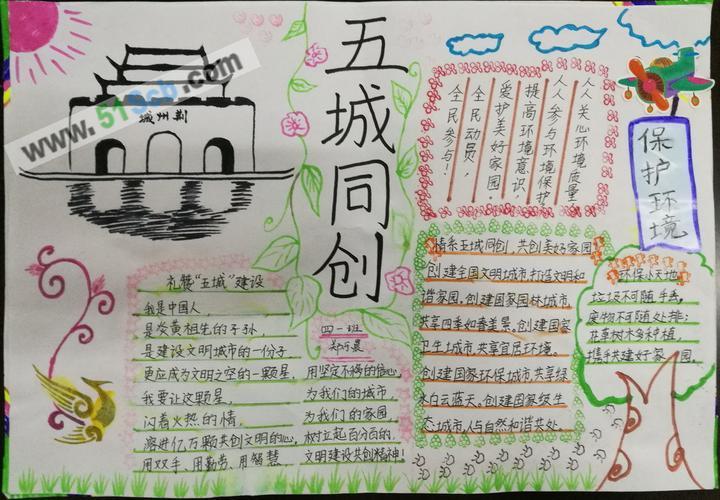 五城同创
荆州城
www.519cb.com
礼赞“五城”建设
我是中国人，
是炎黄祖先的子孙
是建设文明城市的一份子
更应成为文明之空的一颗星
我要让这颗星，
闪着火热的情，
溶进亿万颗共创文明的心，
用双手、用勤劳、用智慧
四一班
用坚定不祸的信心，
为我们的城市，
为我们的家园，
树立起百分百的，
文明建设共创精神！
人人关心环境质量
人人参与环境保护
提高环境意识
爱护美好家园！
全民动员，
全民参与！
保护环境
情系五城同创，共创美好家园
创建全国文明城市，打造文明和
谐家园。创建国家园林城市，
共享四季如春美景。创建国家
卫生城市，共享宜居环境。
创建国家环保城市，共享绿
水白云蓝天。创建国家级生
态城市，人与自然和谐共处。
环保小天地
垃圾不可随手丢，
废物不可随处排；
花草树木多种植，
携手共建好家园。